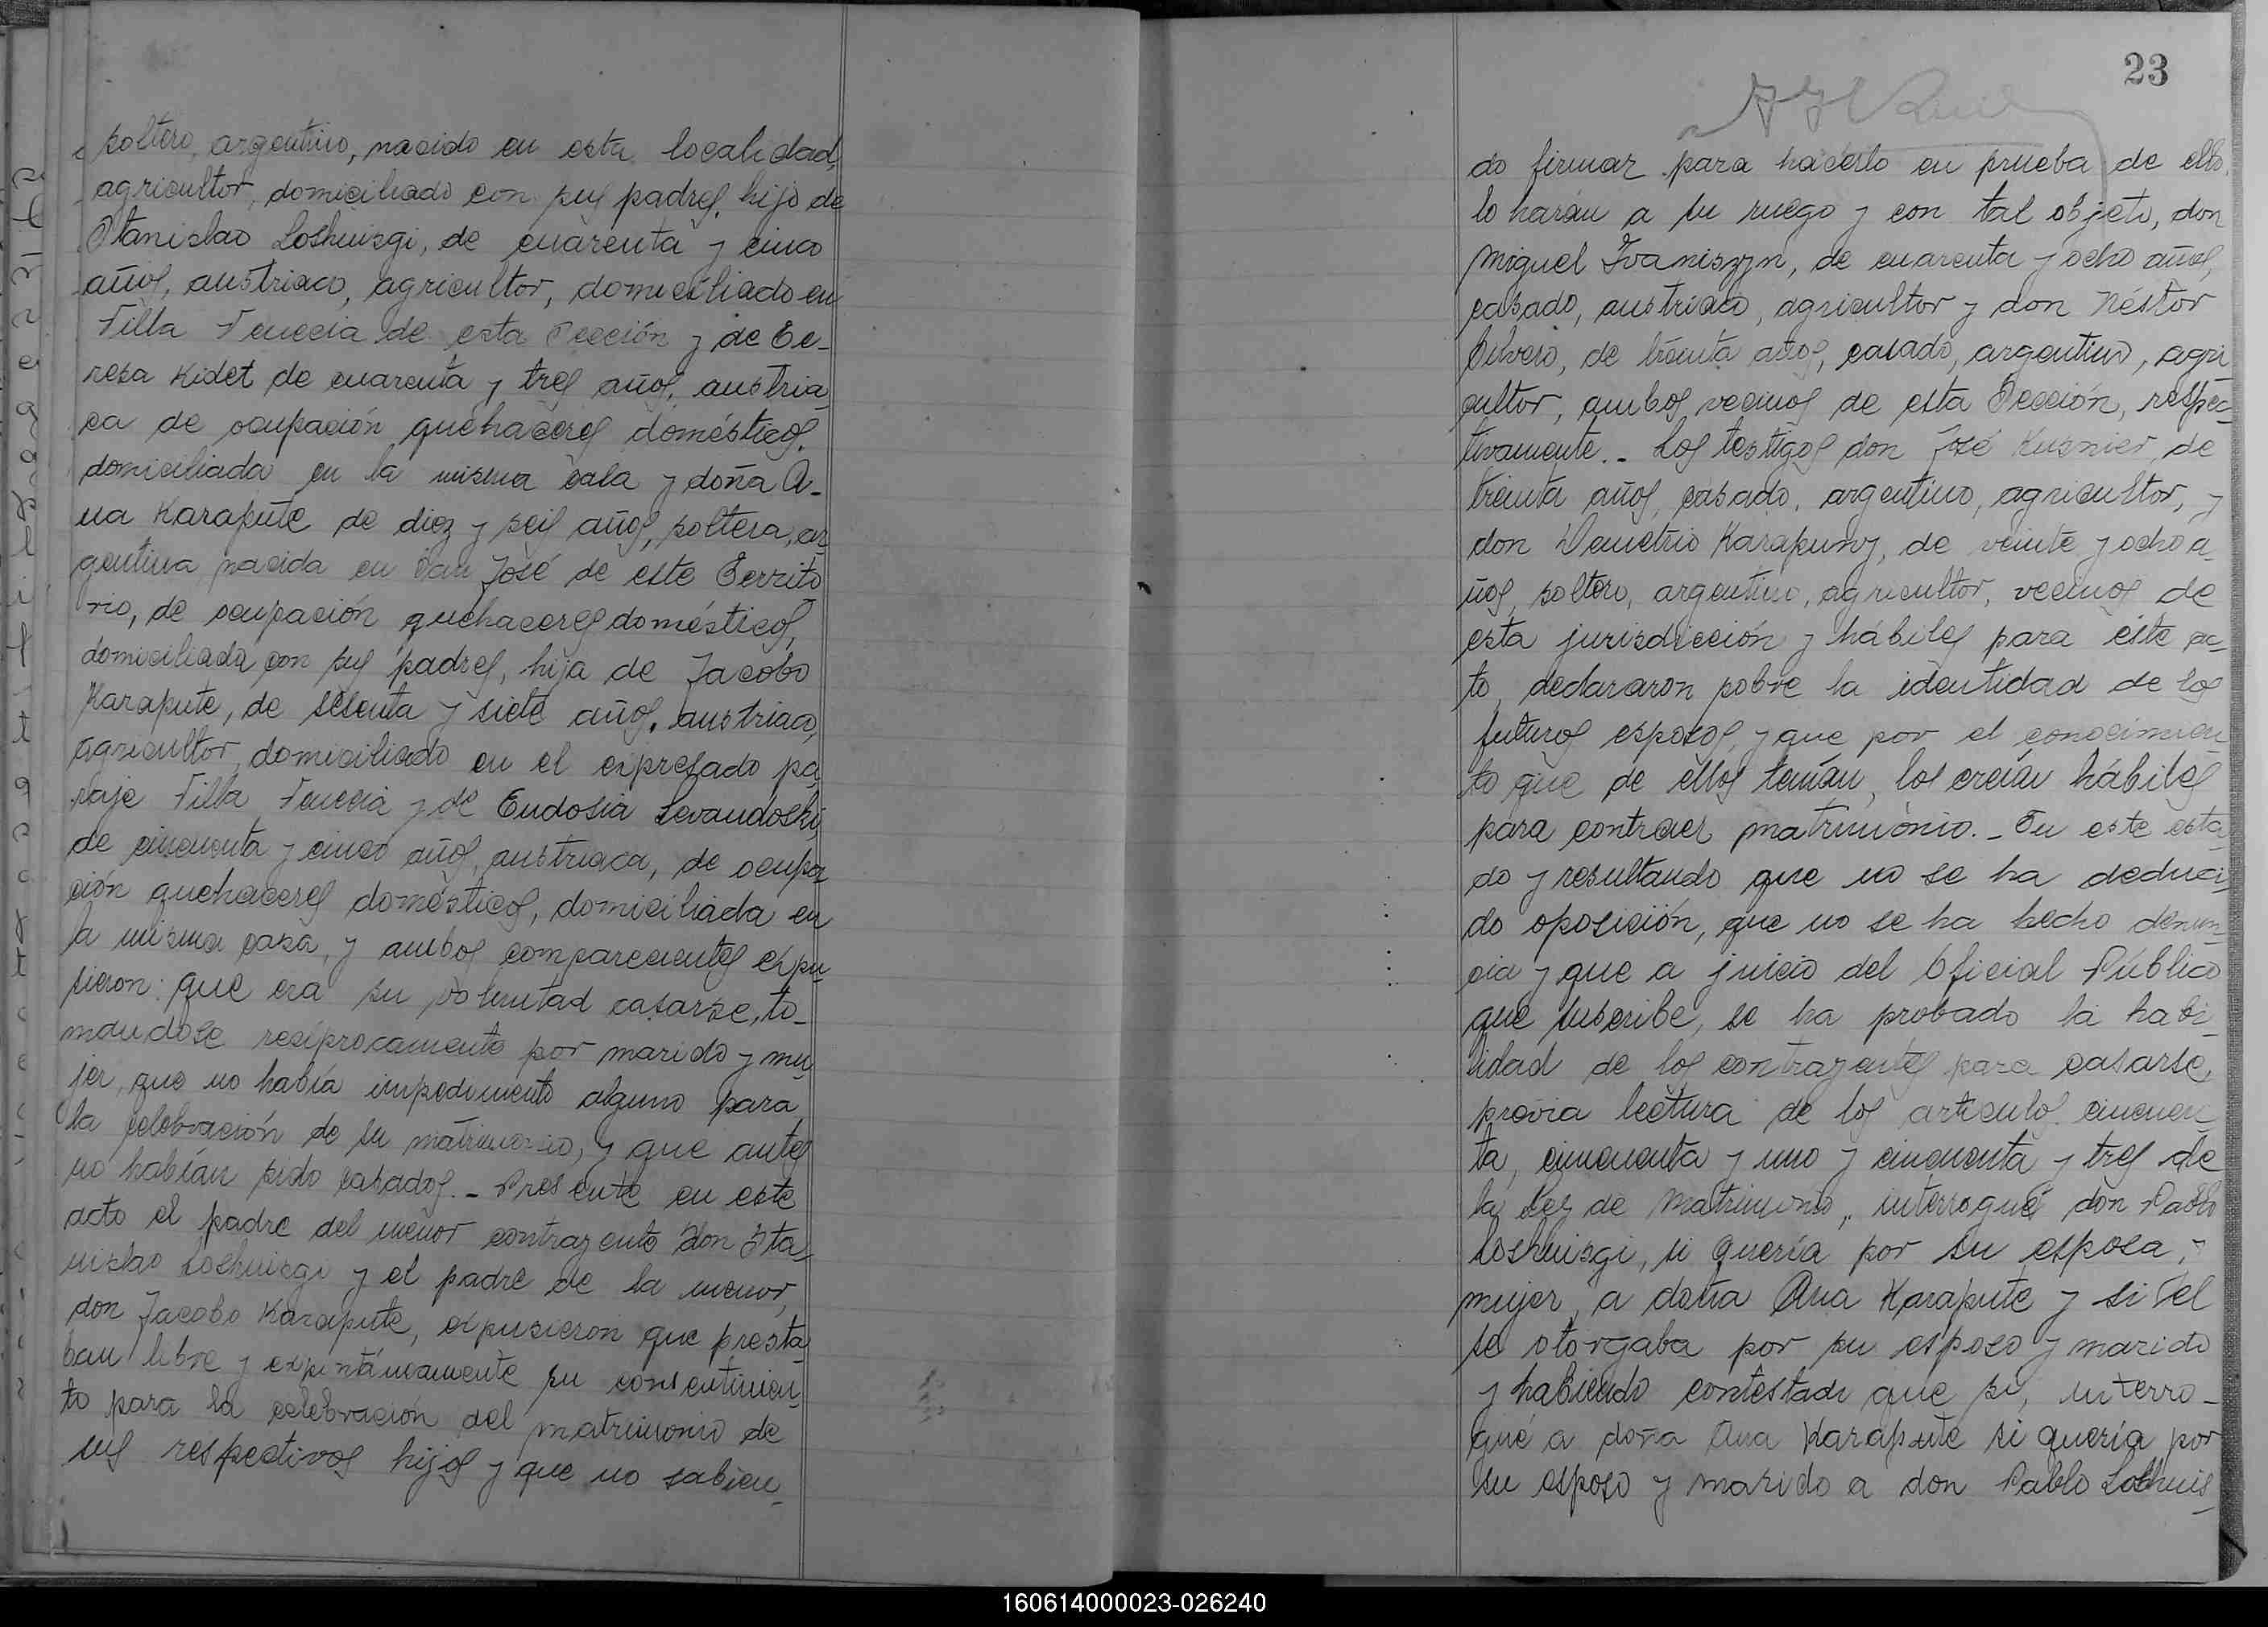 soltero, argentino, nacido en esta localidad,
agricultor, domiciliado con sus padres, hijo de
Stanislao Loshuisgi, de cuarenta y cinco
años, austriaco, agricultor, domiciliado en
Villa Venecia de esta Sección y de Te-
resa Kidet de cuarenta y tres años, austria
ca de ocupación quehaceres domésticos,
domiciliada en la misma casa y doña A-
na Karapute de diez y seis años, soltera, ar
gentina nacida en San José de este Territo
rio, de ocupación quehaceres domésticos,
domiciliada con sus padres, hija de Jacobo
Karapute, de sesenta y siete años, austriaco,
agricultor, domiciliado en el expresado pa
raje Villa Venecia y de Eudosia Levandoski
de cincuenta y cinco años, austriaca, de ocupa
ción quehaceres domésticos, domiciliada en
la misma casa, y ambos comparecientes expu
sieron: que era su voluntad casarse, to-
mandose reciprocamente por marido y mu
jer, que no había impedimento alguno para
la celebración de su matrimonio, y que antes
no habían sido casados.- Presente en este
acto el padre del menor contrayente don Sta
nislao Loshuisgi y el padre de la menor,
don Jacobo Karapute, expusieron que presta
ban libre y expontáneamente su consentimien
to para la celebración del matrimonio de
sus respectivos hijos y que no sabien-
23
do firmar para hacerlo en prueba de ello,
lo harán a su ruego y con tal objeto, don
Miguel Ivaniszyn, de cuarenta y ocho años,
casado, austriaco, agricultor y don Néstor
de treinta años, casado, argentino, agri
cultor, ambos vecinos de esta Sección, respec-
tivamente.- Los testigos don José Kusnier, de
treinta años, casado, argentino, agricultor, y
don Demetrio Karapuny, de veinte y ocho a-
ños, soltero, argentino, agricultor, vecinos de
esta jurisdicción y hábiles para éste ac-
to, declararon sobre la identidad de los
futuros esposos, y que por el conocimien
to que de ellos tenían, los creían hábiles
para contraer matrimonio.- En este esta
do y resultando que no se ha deduci
do oposición, que no se ha hecho denun-
cia y que a juicio del Oficial Público
que suscribe, se ha probado la habi
lidad de los contrayentes para casarse,
previa lectura de los articulos cincuen
ta, cincuenta y uno y cincuenta y tres de
la Ley de Matrimonio, interrogué don Pablo
Loshuisgi, si quería por su esposa y
mujer, a doña Ana Karapute y si él
se otorgaba por su esposo y marido
y habiendo contestado que si, interro-
gué a doña Ana Karapute si quería por
su esposo y marido a don Pablo Loshuis-
160614000023-026240